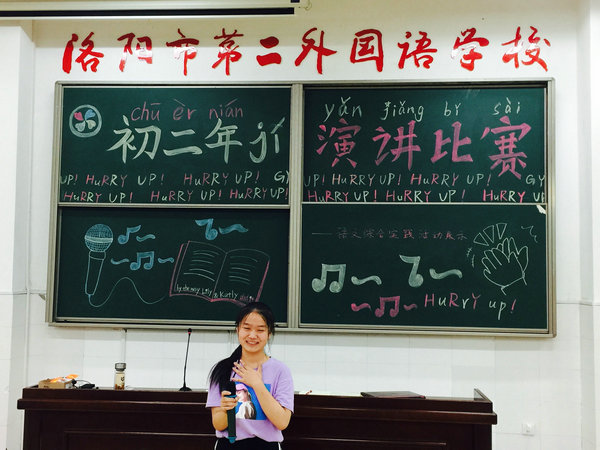 洛阳市第二外国语学校
chū èr nián
初二年jí
UP! HuRRY UP! HuRRY UP! HuRRY UP! GY
HuRRY UP! HuRRY UP! HuRRY UP!
yǎn jiǎng bǐ sài
演讲比赛
UP! HuRRY UP! HuRRY UP! HuRRY UP!
HuRRY UP! HuRRY UP! HuRRY UP!
——语文综合实践活动展示
HuRrY up!